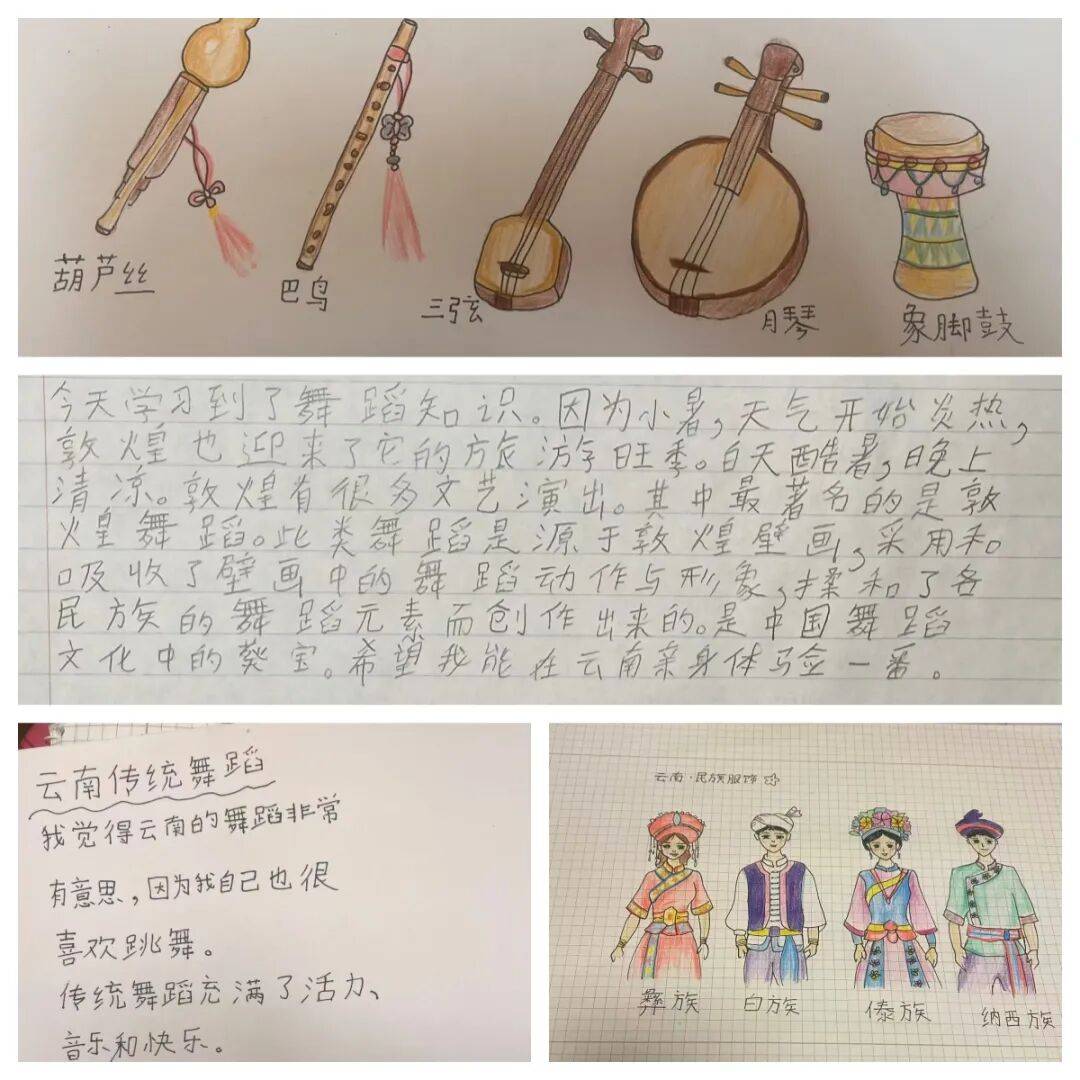 葫芦丝
巴乌
三弦
月琴
象脚鼓
今天学习到了舞蹈知识。因为小暑，天气开始炎热，
敦煌也迎来了它的旅游旺季。白天酷暑，晚上
清凉。敦煌有很多文艺演出。其中最著名的是敦
煌舞蹈。此类舞蹈是源于敦煌壁画，采用和
吸收了壁画中的舞蹈动作与形象，揉和了各
民族的舞蹈元素而创作出来的。是中国舞蹈
文化中的瑰宝。希望我能在云南亲身体验一番。
云南传统舞蹈
我觉得云南的舞蹈非常
有意思，因为我自己也很
喜欢跳舞。
传统舞蹈充满了活力、
音乐和快乐。
云南·民族服饰
彝族
白族
傣族
纳西族